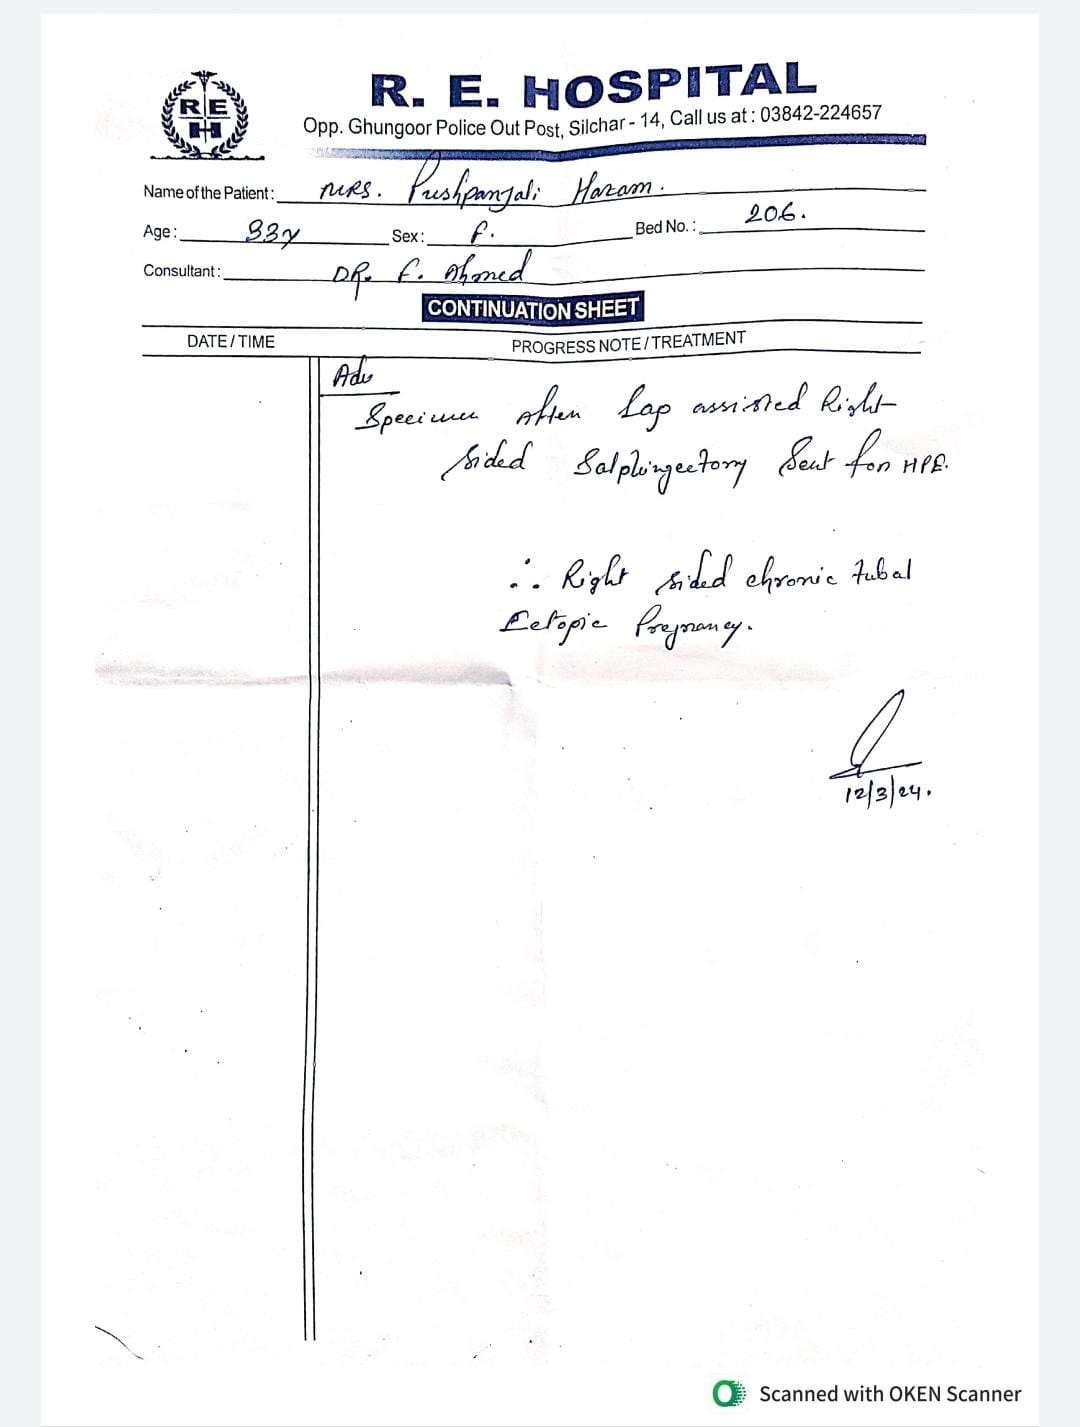 R E
H
R. E. HOSPITAL
Opp. Ghungoor Police Out Post, Silchar - 14, Call us at : 03842-224657
Name of the Patient: MRS. Pushpanjali Hazam.
Age: 33y Sex: F. Bed No. : 206.
Consultant: DR. F. Ahmed
CONTINUATION SHEET
DATE / TIME PROGRESS NOTE / TREATMENT
Adv
Specimen After Lap assisted Right
sided Salphingectomy Sent for HPE.
∴ Right sided chronic tubal
Ectopic Pregnancy.
12/3/24.
Scanned with OKEN Scanner